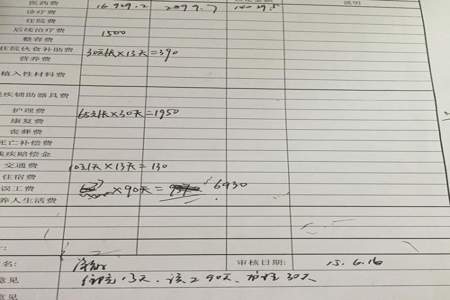 医药费 16929.2
诊疗费 说明
住院费
后续治疗费 1500
整容费
住院伙食补助费 30元/天×13天=390
营养费
植入性材料费
残疾辅助器具费
护理费 65元/天×30天=1950
康复费
丧葬费
死亡补偿费
残疾赔偿金
交通费 10元/天×13天=130
住宿费
误工费 ×90天= 6930
养人生活费
名: 审核日期: 15.6.16
意见 住院13天、误工90天、护理30天
意见